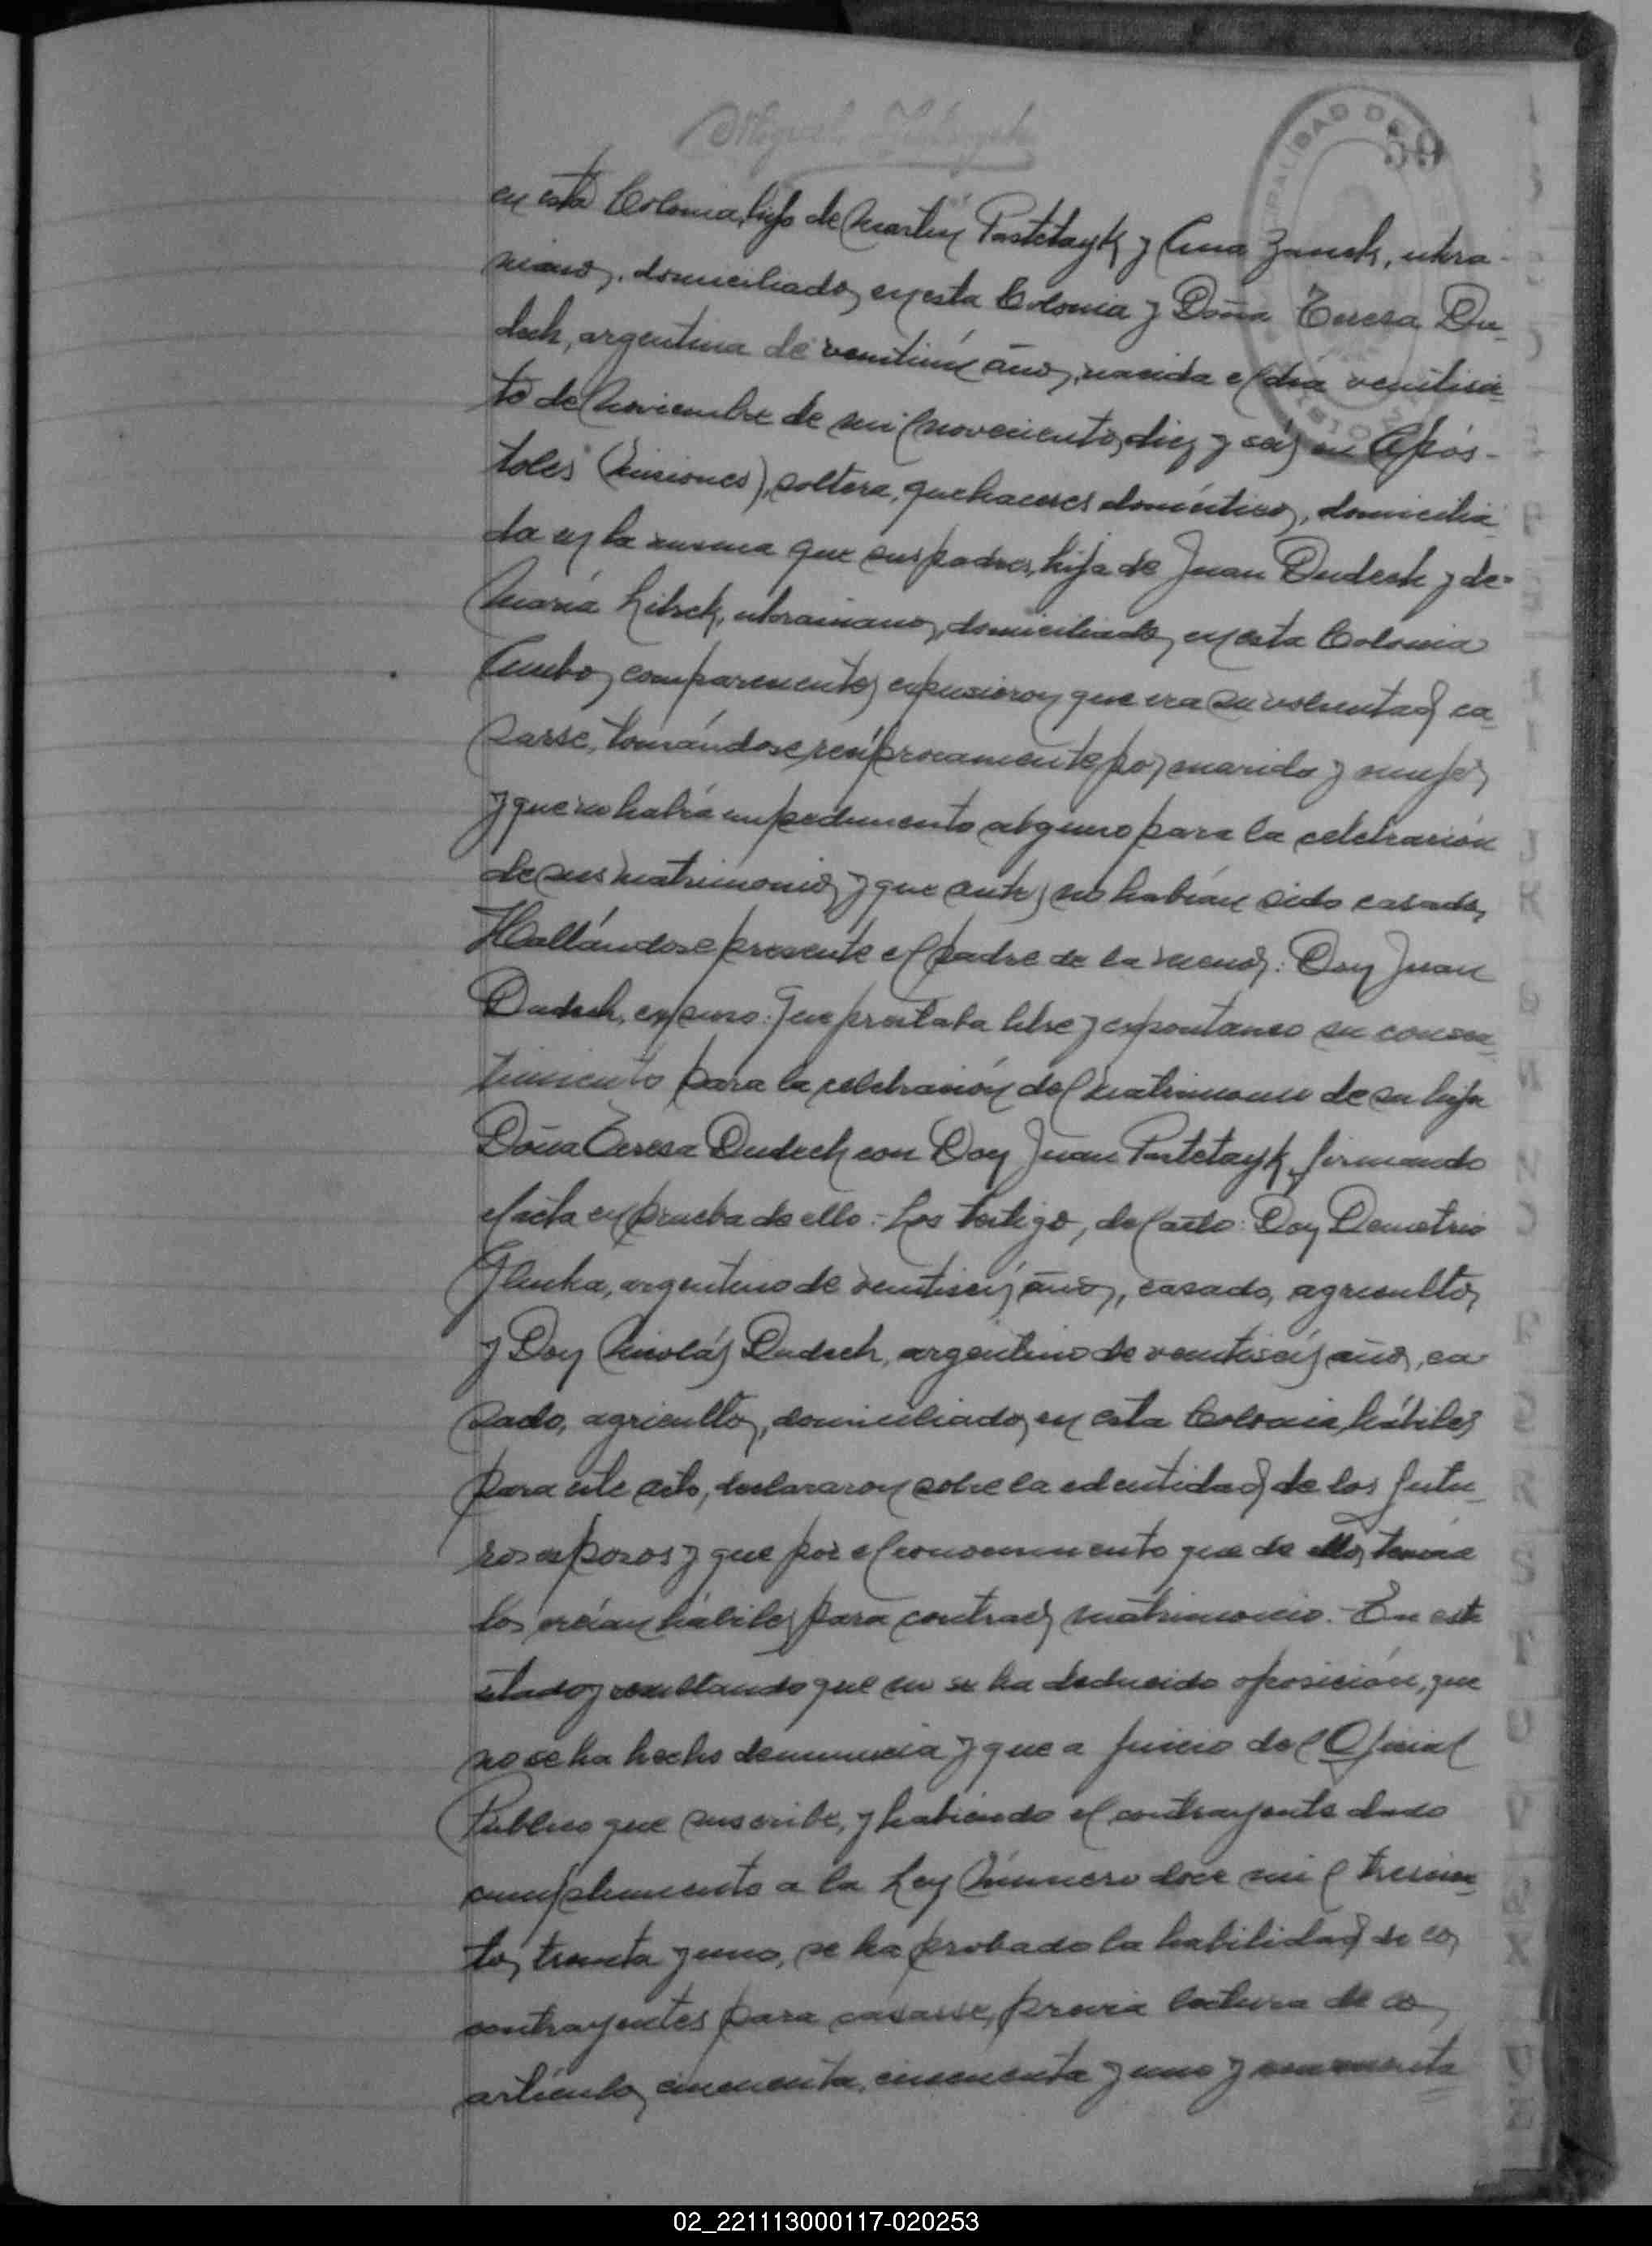 59
en esta Colonia, hijo de Martín Pastetayk y Ana Zanek, ukra-
nianos, domiciliados en esta Colonia y Doña Teresa Du-
dech, argentina de ventiún años, nacida el día ventiséis
to de Noviembre de mil novecientos diez y seis en Após-
toles (Misiones), soltera, quehaceres domésticos, domicilia
da en la misma que sus padres, hija de Juan Dudech y de-
María, ukranianos, domiciliados en esta Colonia
Ambos comparecientes expusieron que era su voluntad ca
sarse, tomándose recíprocamente por marido y mujer
y que no había impedimento alguno para la celebración
de sus matrimonios y que antes no habían sido casados,
Hallándose presente el padre de la menor: Don Juan
Dudech, expuso: Que prestaba libre y expontaneo su consen
timiento para la celebración del matrimonio de su hija
Doña Teresa Dudech con Don Juan Pastetayk, firmando
el acta en prueba de ello.- Los testigos, del acto: Don Demetrio
Glinka, argentino de ventiseis años, casado, agricultor,
y Don Nicolás Dudech, argentino de ventiseis años, ca
sado, agricultor, domiciliados en esta Colonia, hábiles
para este acto, declararon sobre la edentidad de los futu
ros esposos y que por el conocimiento que de ellos tenían
los creían hábiles para contraer matrimonio.- En este
estado y resultando que no se ha deducido oposición, que
no se ha hecho denuncia y que a juicio del Oficial
Público que suscribe, y habiendo el contrayente dado
cumplimiento a la Ley Número doce mil trescien
tos treinta y uno, se ha probado la habilidad de los
contrayentes para casarse, previa lectura de los
artículos cincuenta, cincuenta y uno y
02_221113000117-020253